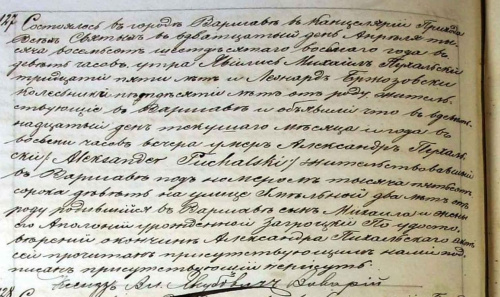 127. Состоялось въ городѣ Варшавѣ въ Канцелярiи Прихода
Всѣхъ Святыхъ въ двадцатый день Апрѣля ты-
сяча восемьсотъ шестьдесятаго восьмаго года въ
девять часовъ утра. Явились Михаилъ Пухальскiй
тридцати пяти лѣтъ и Леонардъ Бржозовски
колесникъ пятьдесяти лѣтъ отъ роду, житель-
ствующiе въ Варшавѣ и объявили что въ
надцатый день текущаго мѣсяца и года въ
восемь часовъ вечера умеръ Александръ Пухаль-
скiй /Aleksander Puchalski/ жительствовавшiй
въ Варшавѣ подъ номеромъ тысяча пятьсотъ
сорокъ девять на улицѣ два лѣтъ отъ
роду родившiйся въ Варшавѣ сынъ Михаила и жены
его Аполонiи урожденной По удосто-
вѣренiи о кончинѣ Александра Пухальскаго актъ
сей прочитанъ присутствующимъ нами под-
писанъ присутствующiе неграмотны
Ксендзъ Ал. Якубовичъ Викарiй
128.